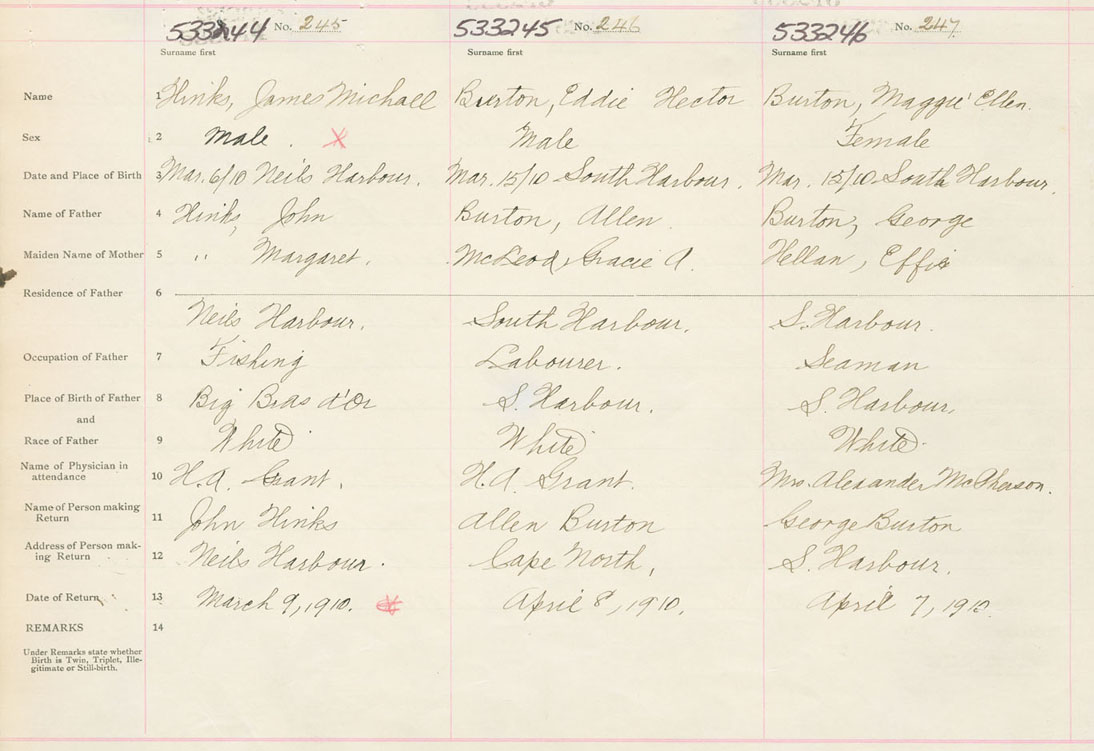 533244 No. 245 533245 No. 246 533246 No. 247
Surname first Surname first Surname first
Name 1 Hinks, James Michall Burton, Eddie Hector Burton, Maggie Ellen.
Sex 2 Male. X Male Female
Date and Place of Birth 3 Mar. 6/10 Neils Harbour. Mar. 15/10 South Harbour. Mar. 15/10 South Harbour.
Name of Father 4 Hinks, John Burton, Allen Burton, George
Maiden Name of Mother 5 " Margaret. McLeod, Gracie A. Hellan, Effie
Residence of Father 6
Neils Harbour. South Harbour. S. Harbour.
Occupation of Father 7 Fishing Labourer. Seaman
Place of Birth of Father 8 Big Bras d'Or S. Harbour. S. Harbour
and
Race of Father 9 White White White
Name of Physician in
attendance 10 H.A. Grant. H.A. Grant. Mrs. Alexander McPherson.
Name of Person making
Return 11 John Hinks Allen Burton George Burton
Address of Person mak-
ing Return 12 Neils Harbour. Cape North, S. Harbour.
Date of Return 13 March 9, 1910. April 8, 1910. April 7, 1910
REMARKS 14
Under Remarks state whether
Birth is Twin, Triplet, Ille-
gitimate or Still-birth.